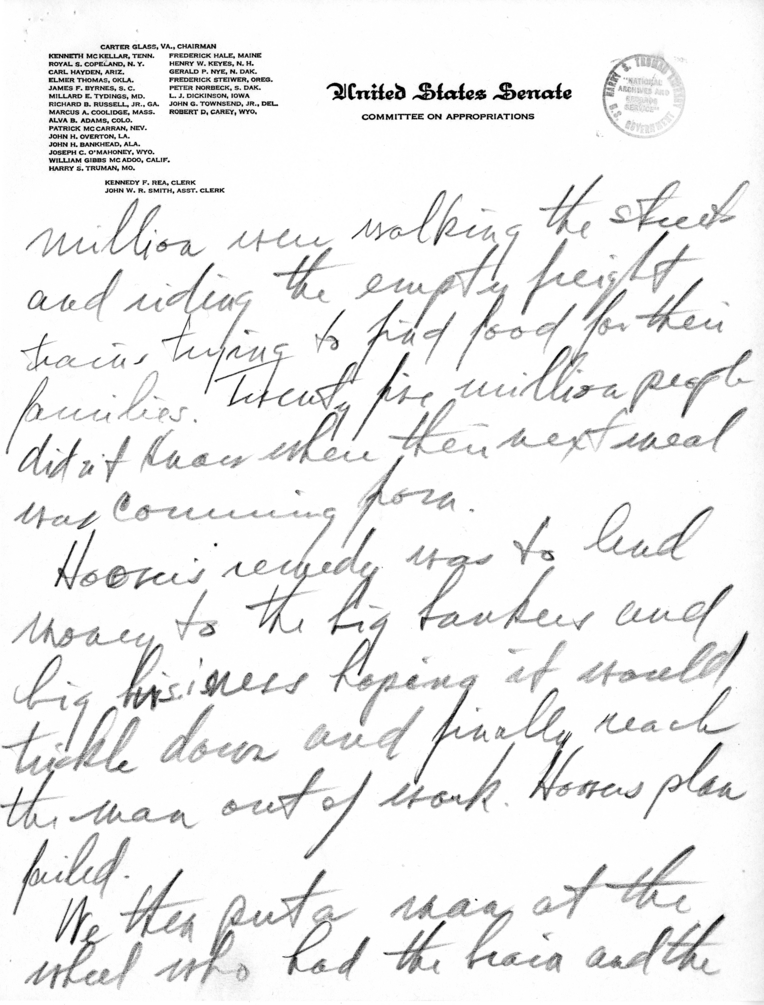 CARTER GLASS, VA., CHAIRMAN
KENNETH MCKELLAR, TENN.
ROYAL S. COPELAND, N. Y.
CARL HAYDEN, ARIZ.
ELMER THOMAS, OKLA.
JAMES F. BYRNES, S. C.
MILLARD E. TYDINGS, MD.
RICHARD B. RUSSELL, JR., GA.
MARCUS A. COOLIDGE, MASS.
ALVA B. ADAMS, COLO.
PATRICK MCCARRAN, NEV.
JOHN H. OVERTON, LA.
JOHN H. BANKHEAD, ALA.
JOSEPH C. O'MAHONEY, WYO.
WILLIAM GIBBS MCADOO, CALIF.
HARRY S. TRUMAN, MO.
FREDERICK HALE, MAINE
HENRY W. KEYES, N. H.
GERALD P. NYE, N. DAK.
FREDERICK STEIWER, OREG.
PETER NORBECK, S. DAK.
L. J. DICKINSON, IOWA
JOHN G. TOWNSEND, JR., DEL.
ROBERT D, CAREY, WYO.
KENNEDY F. REA, CLERK
JOHN W. R. SMITH, ASST. CLERK
United States Senate
COMMITTEE ON APPROPRIATIONS
HARRY S. TRUMAN LIBRARY
"NATIONAL
ARCHIVES AND
RECORDS
SERVICE"
U.S. GOVERNMENT
million were walking the streets
and riding the empty freight
trains trying to find food for their
families. Twenty five million people
didn't know where their next meal
was comming from.
Hoover's remedy was to lend
money to the big bankers and
big business hoping it would
trickle down and finally reach
the man out of work. Hoovers plan
failed.
We then put a man at the
wheel who had the brain and the